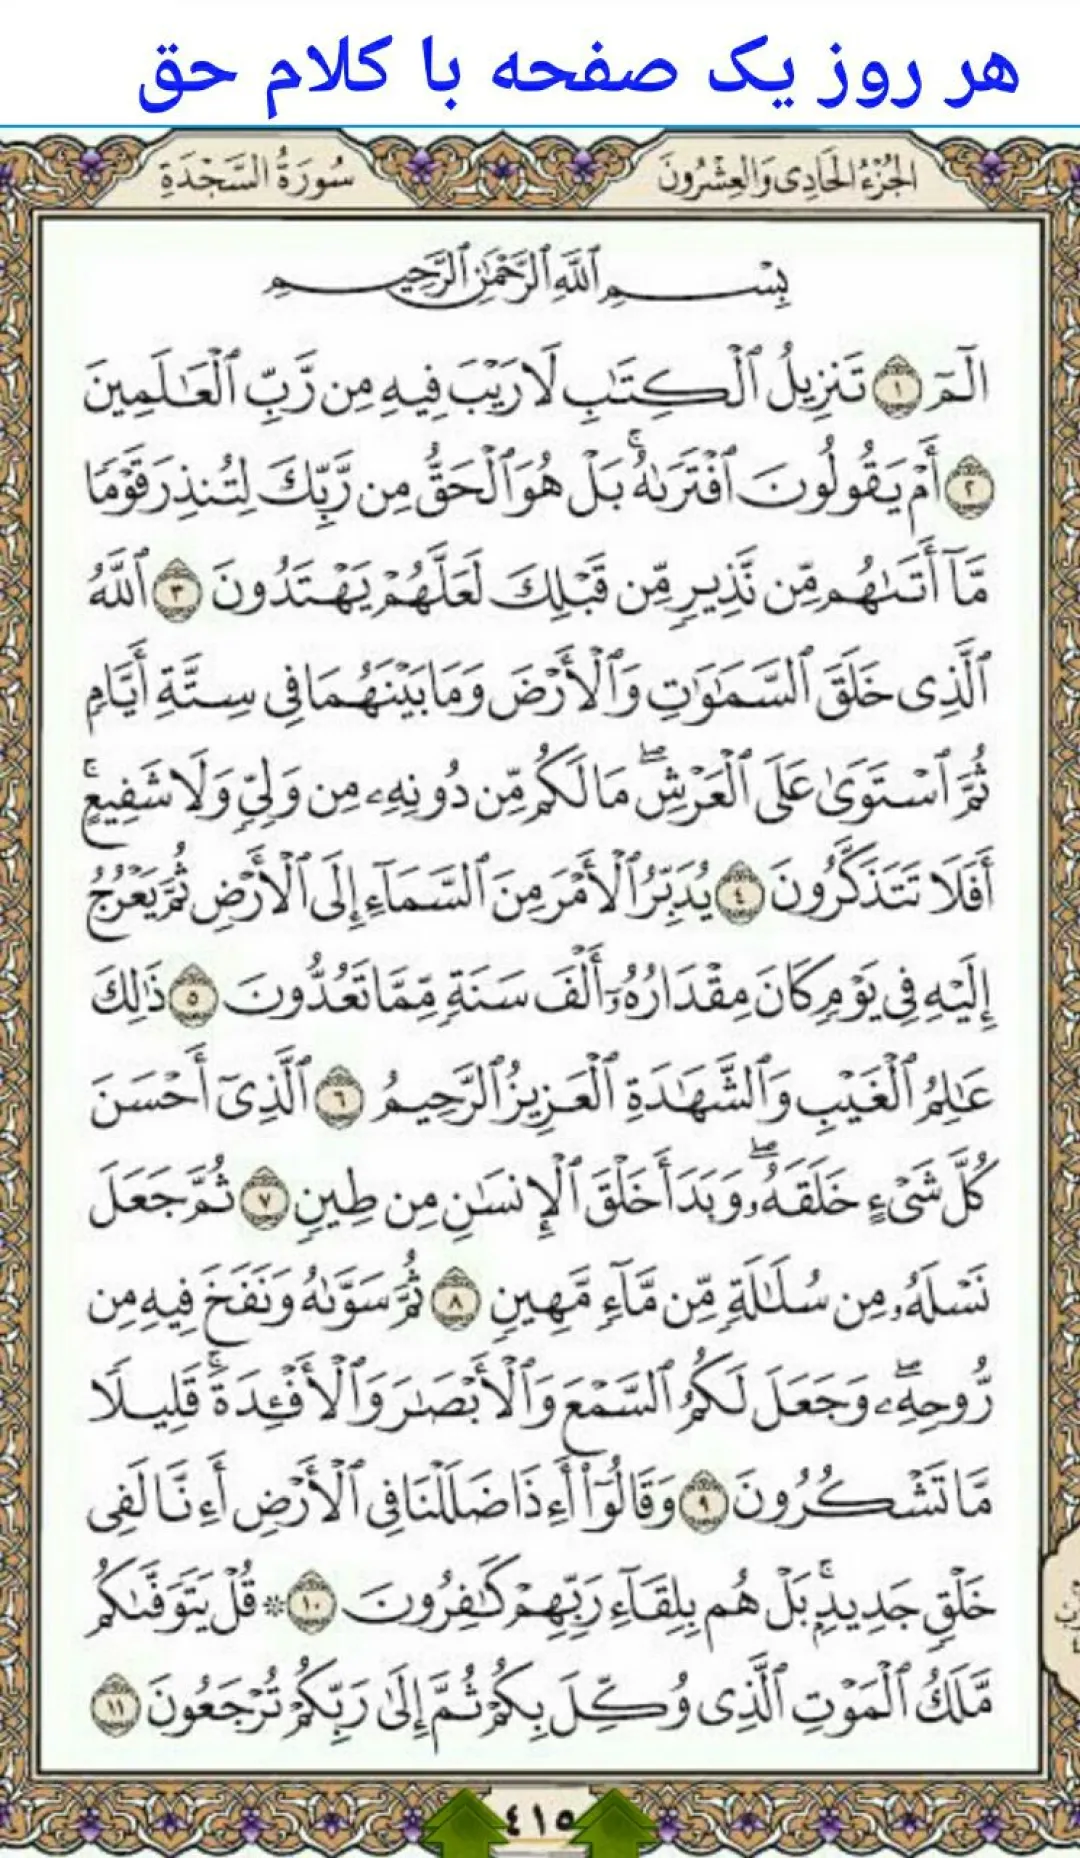 هر روز یک صفحه با کلام حق
الجُزْءُ الحَادِى وَالعِشْرُونَ
سُورَةُ السَّجْدَةِ
بِسْمِ ٱللَّهِ ٱلرَّحْمَٰنِ ٱلرَّحِيمِ
الٓمٓ ١ تَنزِيلُ ٱلْكِتَٰبِ لَا رَيْبَ فِيهِ مِن رَّبِّ ٱلْعَٰلَمِينَ
٢ أَمْ يَقُولُونَ ٱفْتَرَىٰهُ ۚ بَلْ هُوَ ٱلْحَقُّ مِن رَّبِّكَ لِتُنذِرَ قَوْمًا
مَّآ أَتَىٰهُم مِّن نَّذِيرٍ مِّن قَبْلِكَ لَعَلَّهُمْ يَهْتَدُونَ ٣ ٱللَّهُ
ٱلَّذِى خَلَقَ ٱلسَّمَٰوَٰتِ وَٱلْأَرْضَ وَمَا بَيْنَهُمَا فِى سِتَّةِ أَيَّامٍ
ثُمَّ ٱسْتَوَىٰ عَلَى ٱلْعَرْشِ ۖ مَا لَكُم مِّن دُونِهِۦ مِن وَلِىٍّ وَلَا شَفِيعٍ ۚ
أَفَلَا تَتَذَكَّرُونَ ٤ يُدَبِّرُ ٱلْأَمْرَ مِنَ ٱلسَّمَآءِ إِلَى ٱلْأَرْضِ ثُمَّ يَعْرُجُ
إِلَيْهِ فِى يَوْمٍ كَانَ مِقْدَارُهُۥٓ أَلْفَ سَنَةٍ مِّمَّا تَعُدُّونَ ٥ ذَٰلِكَ
عَٰلِمُ ٱلْغَيْبِ وَٱلشَّهَٰدَةِ ٱلْعَزِيزُ ٱلرَّحِيمُ ٦ ٱلَّذِىٓ أَحْسَنَ
كُلَّ شَىْءٍ خَلَقَهُۥ ۖ وَبَدَأَ خَلْقَ ٱلْإِنسَٰنِ مِن طِينٍ ٧ ثُمَّ جَعَلَ
نَسْلَهُۥ مِن سُلَٰلَةٍ مِّن مَّآءٍ مَّهِينٍ ٨ ثُمَّ سَوَّىٰهُ وَنَفَخَ فِيهِ مِن
رُّوحِهِۦ ۖ وَجَعَلَ لَكُمُ ٱلسَّمْعَ وَٱلْأَبْصَٰرَ وَٱلْأَفْـِٔدَةَ ۚ قَلِيلًا
مَّا تَشْكُرُونَ ٩ وَقَالُوٓا۟ أَءِذَا ضَلَلْنَا فِى ٱلْأَرْضِ أَءِنَّا لَفِى
خَلْقٍ جَدِيدٍۭ ۚ بَلْ هُم بِلِقَآءِ رَبِّهِمْ كَٰفِرُونَ ١٠ ۞ قُلْ يَتَوَفَّىٰكُم
مَّلَكُ ٱلْمَوْتِ ٱلَّذِى وُكِّلَ بِكُمْ ثُمَّ إِلَىٰ رَبِّكُمْ تُرْجَعُونَ ١١
٤١٥